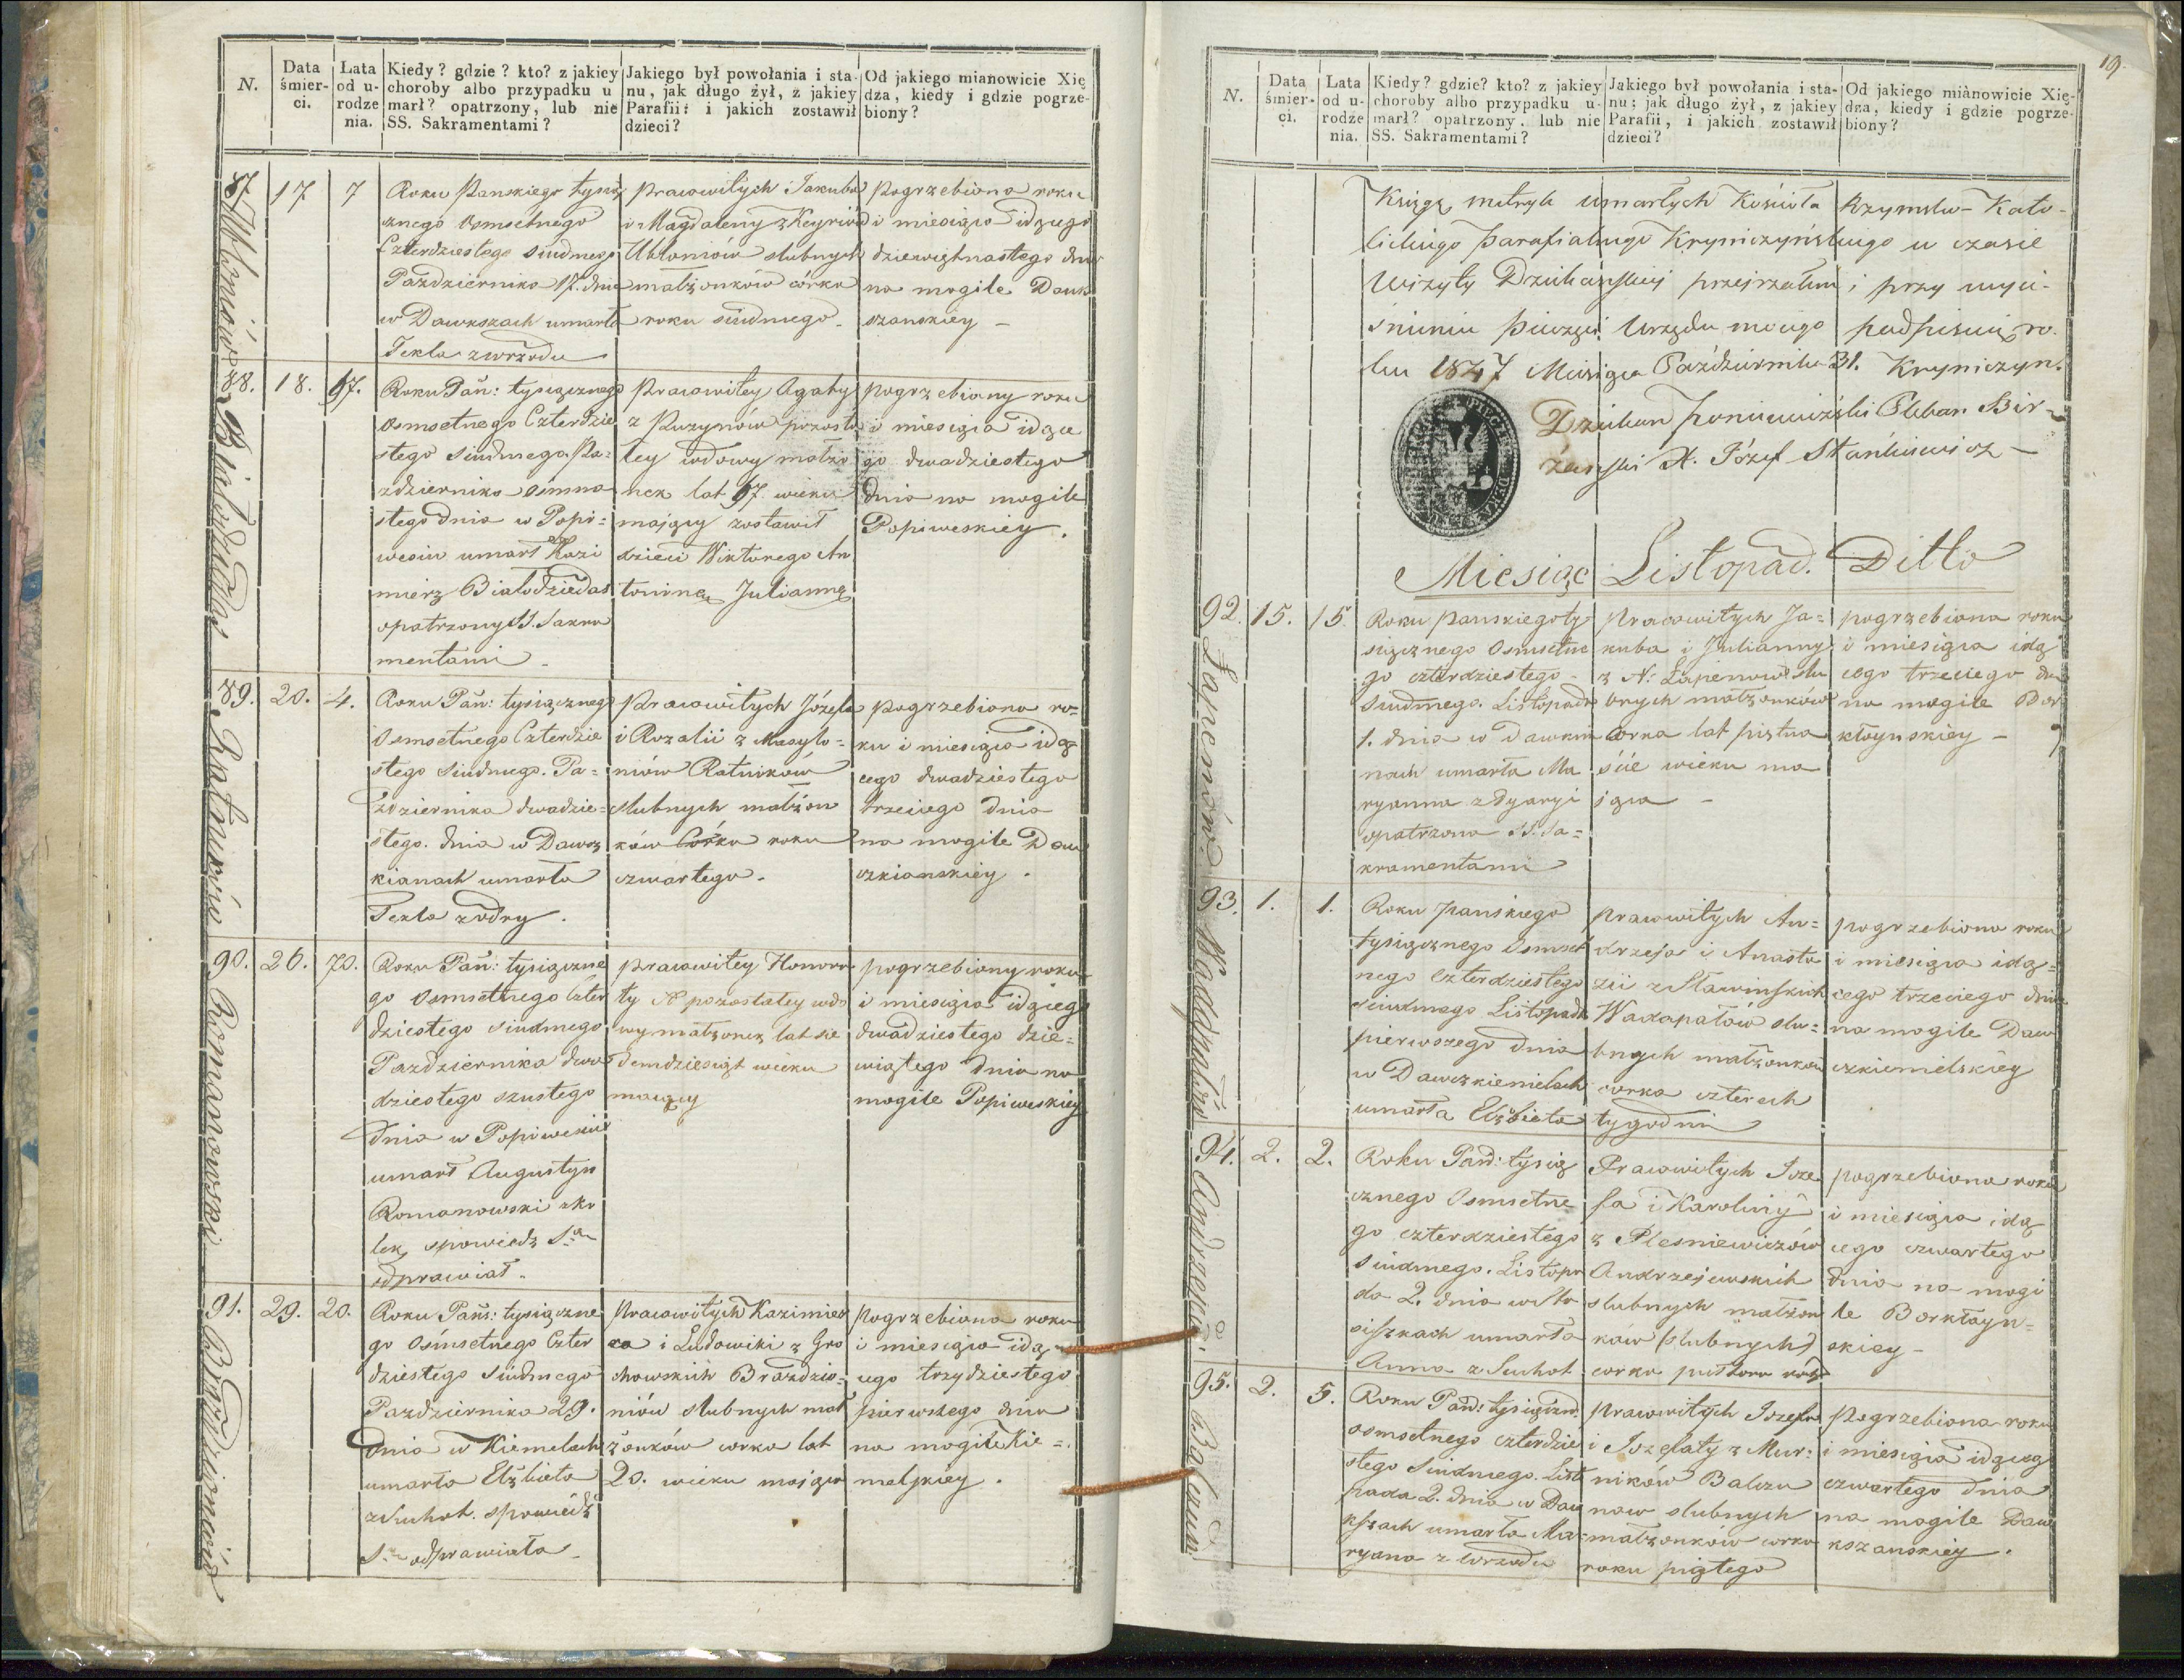 N.
Data śmierci.
Lata od urodzenia.
Kiedy? gdzie? kto? z jakiey
choroby albo przypadku u
marł? opatrzony, lub nie
SS. Sakramentami?
Jakiego był powołania i sta-
nu, jak długo żył, z jakiey
Parafii: i jakich zostawił
dzieci?
Od jakiego mianowicie Xię
dza, kiedy i gdzie pogrze-
biony?
87
17
7
Roku Panskiego tysią
cznego osmsetnego
Czterdziestego siudmego
Października 17. dnia
w Dawkszach umarła
Tekla z wrzodu
pracowitych Jakuba
i Magdaleny z
małżonków córka
roku siudmego
pogrzebiona roku
i miesiąca idącego
dziewiętnastego dnia
na mogile Dauk
szanskiey –
88.
18.
67.
Białodziedas
Roku Pań: tysiącznego
osmsetnego Czterdzie
stego siudmego. Pa=
zdziernika osimna
stego dnia w Popi=
wesiu umarł Kazi
mierz Białodziedas
opatrzony SS. Sakra
mentami –
Pracowitey Agaty
z Puzynów pozosta
łey wdowy małżo
nek lat 67. wieku
mający zostawił
dzieci Wiktorego An
toninę Juliannę
pogrzebiony roku
i miesiąca idące
go dwadziestego
dnia na mogile
Popiweskiey.
89.
20.
4.
Ratników
Roku Pań: tysiącznego
Osmsetnego Czterdzie
stego siudmego. Pa=
ździernika dwadzie=
stego. dnia w Dawcz
kianach umarła
Tekla z odry.
Pracowitych Józefa
i Rozalii z Masylo=
niów Ratników
slubnych małżon
ków Córka roku
czwartego.
pogrzebiona ro=
ku i miesiąca idą
cego dwadziestego
trzeciego dnia
na mogile Daw
czkianskiey.
90.
26.
70.
Romanowski
Roku Pań: tysiączne
go osmsetnego Czter
dziestego siudmego
Pazdziernika dwa
dziestego szustego
dnia w Popiwesiu
umarł Augustyn
Romanowski z ko
lek, spowiedź S.
odprawiał.
pracowitey Honora
ty N pozostałey wdo
wy małżonek lat sie
demdziesiąt wieku
mający
pogrzebiony roku
i miesiąca idącego
dwadziestego dzie=
wiątego dnia na
mogile Popiweskiey
91.
29.
20.
Roku Pań: tysiączne
go osmsetnego Czter
dziestego siudmego
Pazdziernika 29.
dnia w Kiemelach
umarła Elżbieta
z Suchot. spowiedź
S. odprawiała –
Pracowitych Kazimier
za i Ludowiki z Gro
chowskich Brazdzio=
niów slubnych mał
żonków corka lat
20. wieku mająca
pogrzebiona roku
i miesiąca idą
cego trzydziestego
pierwszego dnia
na mogile Kie=
melskiey.
19.
N.
Data śmierci.
Lata od urodzenia.
Kiedy? gdzie? kto? z jakiey
choroby albo przypadku u-
marł? opatrzony. lub nie
SS. Sakramentami?
Jakiego był powołania i sta-
nu; jak długo żył, z jakiey
Parafii, i jakich zostawił
dzieci?
Od jakiego mianowicie Xię-
dza, kiedy i gdzie pogrze-
biony?
Księgę metryk umarłych Kościoła Rzymsko-Kato-
lickiego Parafialnego Kryniczyńskiego w czasie
Wizyty Dziekańskiej przejrzałem i przy wyci-
śnieniu Pieczęci Urzędu moiego podpisuię ro-
ku 1847 Miesiąca Października 31. Kryniczyn.
Dziekan Poniewiezki Pleban Bir-
żański X. Józef Stankiewicz –
Miesiąc Listopad. Ditto
92.
15.
15.
Łapienów
Roku Panskiego ty
siącznego Osmsetne
go czterdziestego
siudmego. Listopada
1. dnia w Dawkni
nach umarła Ma
ryanna z Dyaryi
opatrzona SS. Sa=
kramentami
Pracowitych Ja=
kuba i Julianny
z N. Łapienow slu
bnych małżonków
corka lat piętna
ście wieku ma
jąca –
pogrzebiona roku
i miesiąca idą
cego trzeciego dnia
na mogile Bor
kłoynskiey –
93.
1.
1.
Roku Panskiego
tysiącznego Osmset
nego Czterdziestego
siudmego Listopada
pierwszego dnia
w Dawczkiemielach
umarła Elżbieta
Pracowitych An=
drzeja i Anasta
zii z Sławinskich
Wadapałów slu=
bnych małżonków
corka czterech
tygodni
pogrzebiona roku
i miesiąca idą=
cego trzeciego dnia
na mogile Daw
czkiemielskiey
94.
2.
2.
Roku Pań: tysią
cznego Osmsetne
go czterdziestego
siudmego. Listopa
da 2. dnia w
umarła
Anna z Suchot
Pracowitych Joze
fa i Karoliny
z Plesniewiczów
Andrzejewskich
slubnych małżon
ków (slubnych)
corka pułtora roku
pogrzebiona roku
i miesiąca idą
cego czwartego
dnia na mogi
le Borkłoyn=
skiey –
95.
2.
5.
Balczun
Roku Pań: tysiączn.
osmsetnego czterdzie
stego siudmego. Listo
pada 2. dnia w Dau
kszach umarła Ma=
ryana z wrzodu
Pracowitych Jozefa
i Jozefaty z Mur=
ników Balczu
naw slubnych
małżonków corka
roku piątego
Pogrzebiona roku
i miesiąca idącego
czwartego dnia
na mogile Daw
kszanskiey.